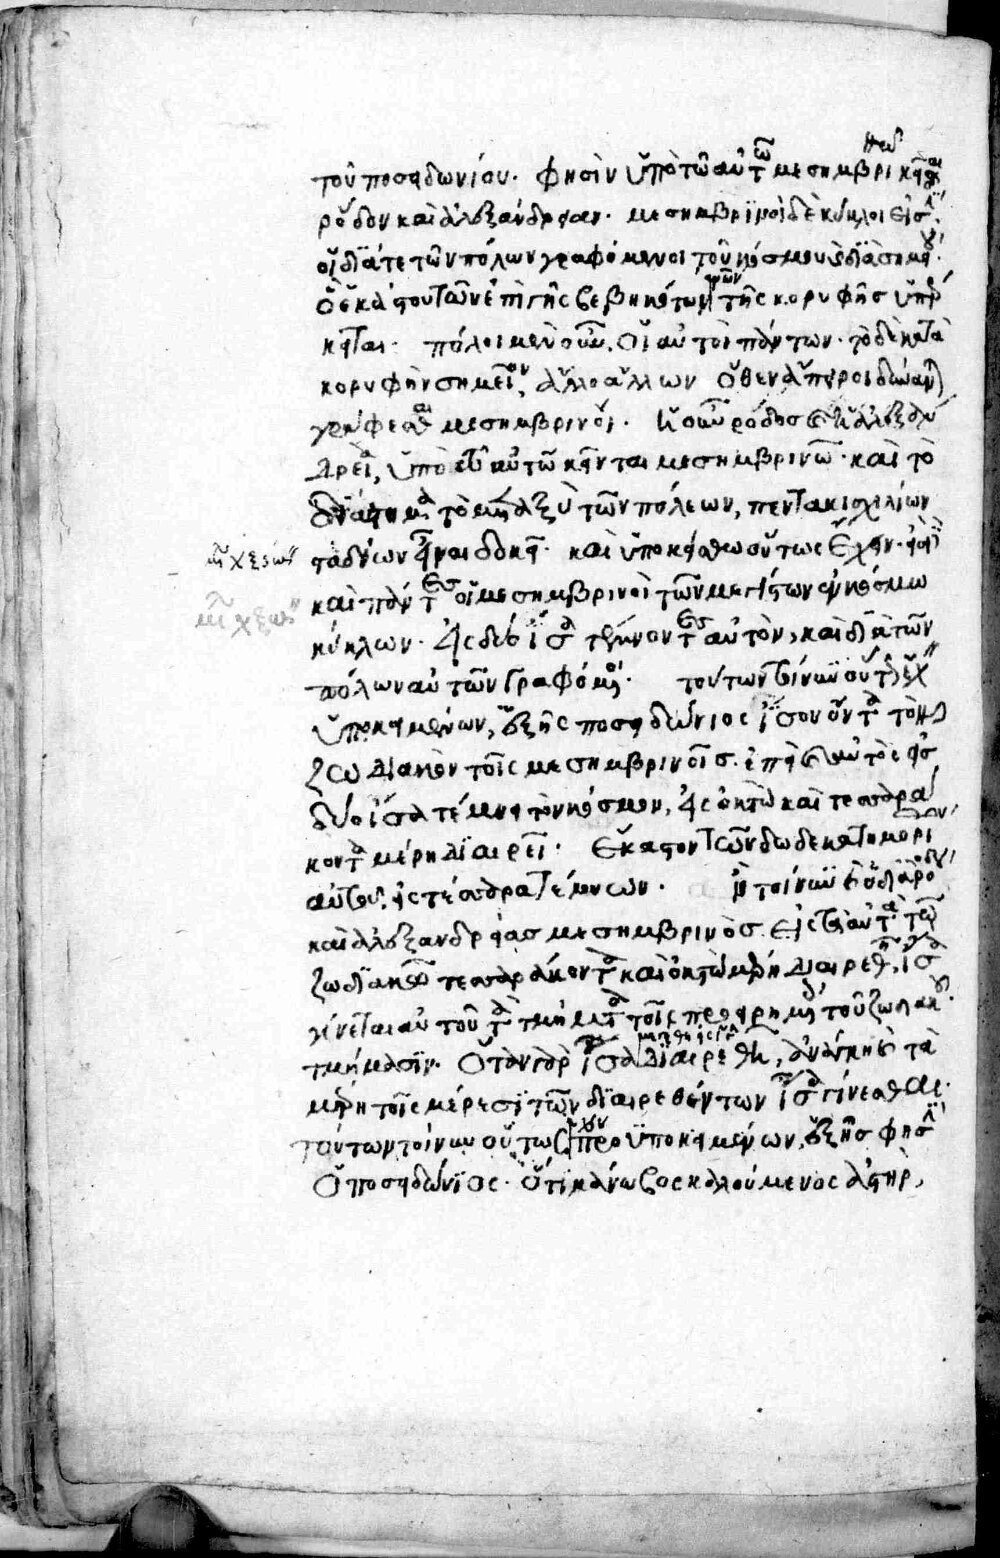 τοῦ ποσειδωνίου. φησὶν ὑπὸ τῶ αὐτῶ μεσημβρινῶ κεῖσθαι
ῥόδον καὶ ἀλεξάνδρειαν. μεσημβρινοὶ δὲ κύκλοι εἰσὶν,
οἱ διά τε τῶν πόλων γραφόμενοι τοῦ κόσμου καὶ διὰ σημείου.
ὃ ἑκάστου τῶν ἐπὶ γῆς βεβηκότων τῆς κορυφῆς ὑπέρ
κειται. πόλοι μὲν οὖν, οἱ αὐτοὶ πάντων. τὸ δὲ κατὰ
κορυφὴν σημεῖον, ἄλλο ἄλλων ὅθεν ἄπειροι δύνανται
γράφεσθαι μεσημβρινοί. ἡ οὖν ῥόδος καὶ ἡ ἀλεξάν
δρεια, ὑπὸ τῶ αὐτῶ κεῖνται μεσημβρινῶ. καὶ τὸ
διάστημα τὸ μεταξὺ τῶν πόλεων, πεντακισχιλίων
σταδίων εἶναι δοκεῖ. καὶ ὑποκείσθω οὕτως ἔχειν. εἰσὶ
καὶ πάντες οἱ μεσημβρινοὶ τῶν μεγίστων ἐν κόσμω
κύκλων. εἰς δύο ἴσα τέμνοντες αὐτὸν, καὶ διὰ τῶν
πόλων αὐτῶν γραφόμενοι. τούτων τοίνυν οὕτως ἔχειν
ὑποκειμένων, ἑξῆς ποσειδώνιος ἴσον ὄντα τὸν
ζωδιακὸν τοῖς μεσημβρινοῖς. ἐπεὶ καὶ αὐτὸς εἰς
δύο ἴσα τέμνει τὸν κόσμον, εἰς ὀκτὼ καὶ τεσσαρά
κοντα μέρη διαιρεῖ. ἕκαστον τῶν δωδεκατημορίων
αὐτοῦ, εἰς τέσσαρα τέμνων. ἂν τοίνυν καὶ ὁ διὰ ῥόδου
καὶ ἀλεξανδρείας μεσημβρινὸς. εἰς τὰ αὐτὰ τῶ
ζωδιακῶ τεσσαράκοντα καὶ ὀκτὼ μέρη διαιρεθῆ, ἴσα
γίνεται αὐτοῦ τὰ τμήματα τοῖς προειρημένοις τοῦ ζωδιακοῦ
τμήμασιν. ὅταν γὰρ ἴσα μεγέθη εἰς ἴσα διαιρεθῆ, ἀνάγκη καὶ τὰ
μέρη τοῖς μέρεσι τῶν διαιρεθέντων ἴσα γίνεσθαι.
τούτων τοίνυν οὕτως ἔχειν προϋποκειμένων, ἑξῆς φησὶν
ὁ ποσειδώνιος. ὅτι κάνωβος καλούμενος ἀστὴρ,